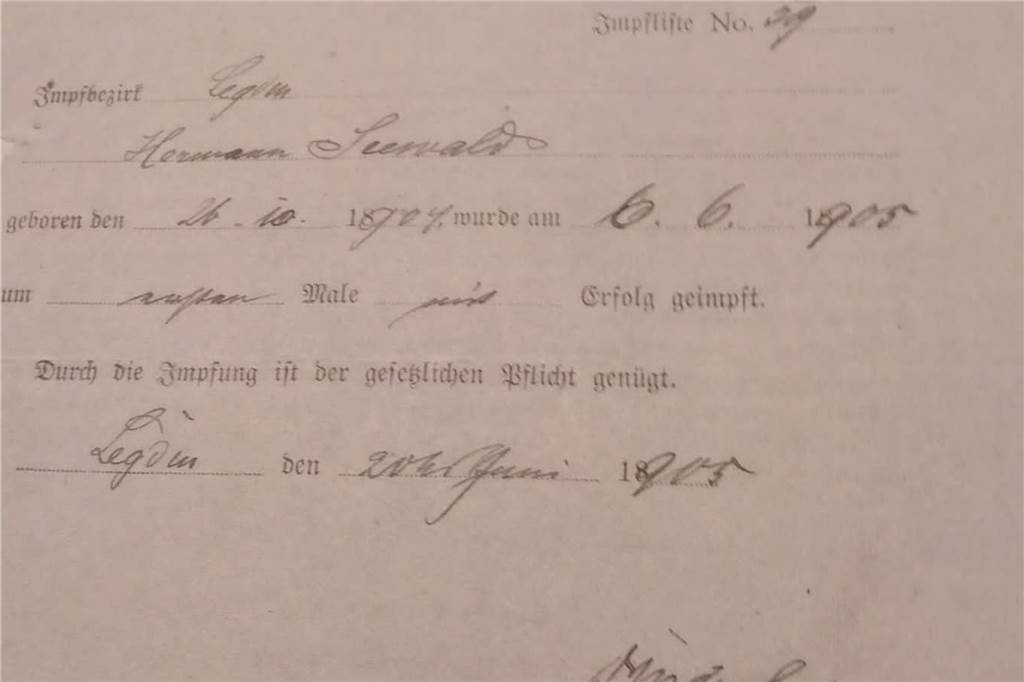 Impfliste No. 39
Impfbezirk Legden
Hermann Seewald
geboren den 26. 10. 1904. wurde am 6. 6. 1905
um ersten Male mit Erfolg geimpft.
Durch die Impfung ist der gesetzlichen Pflicht genügt.
Legden den 20ten Juni 1905